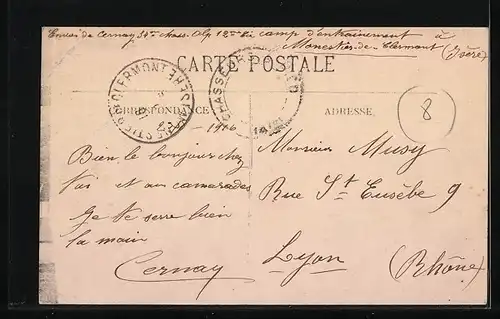 Envoi de Cernay 30e chass. Alp 12e Cie camp d'entraînement à
Monestier-de-Clermont (Isère)
CARTE POSTALE
CORRESPONDANCE
ADRESSE
1916
Bien le bonjour chez
toi et aux camarades
Je te serre bien
la main
Cernay
Monsieur Musy
Rue St Eusèbe 9
Lyon
(Rhône)
8
CLERMONT
CHASSEURS